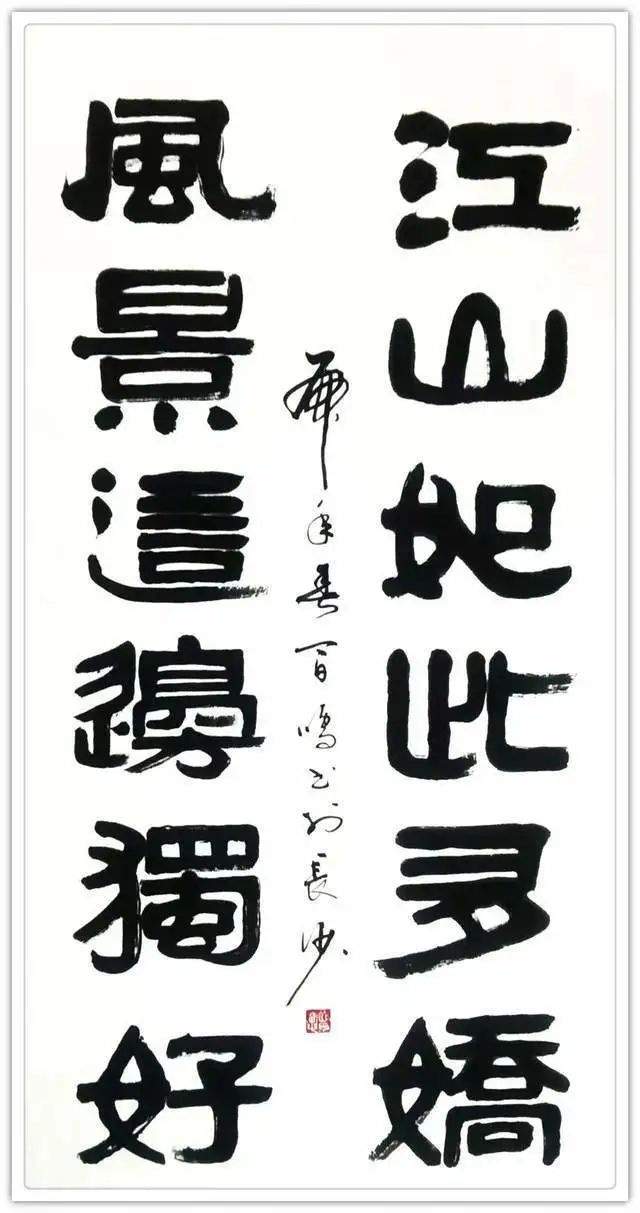 江山如此多嬌
風景這邊獨好
虎年春百鳴书於長沙